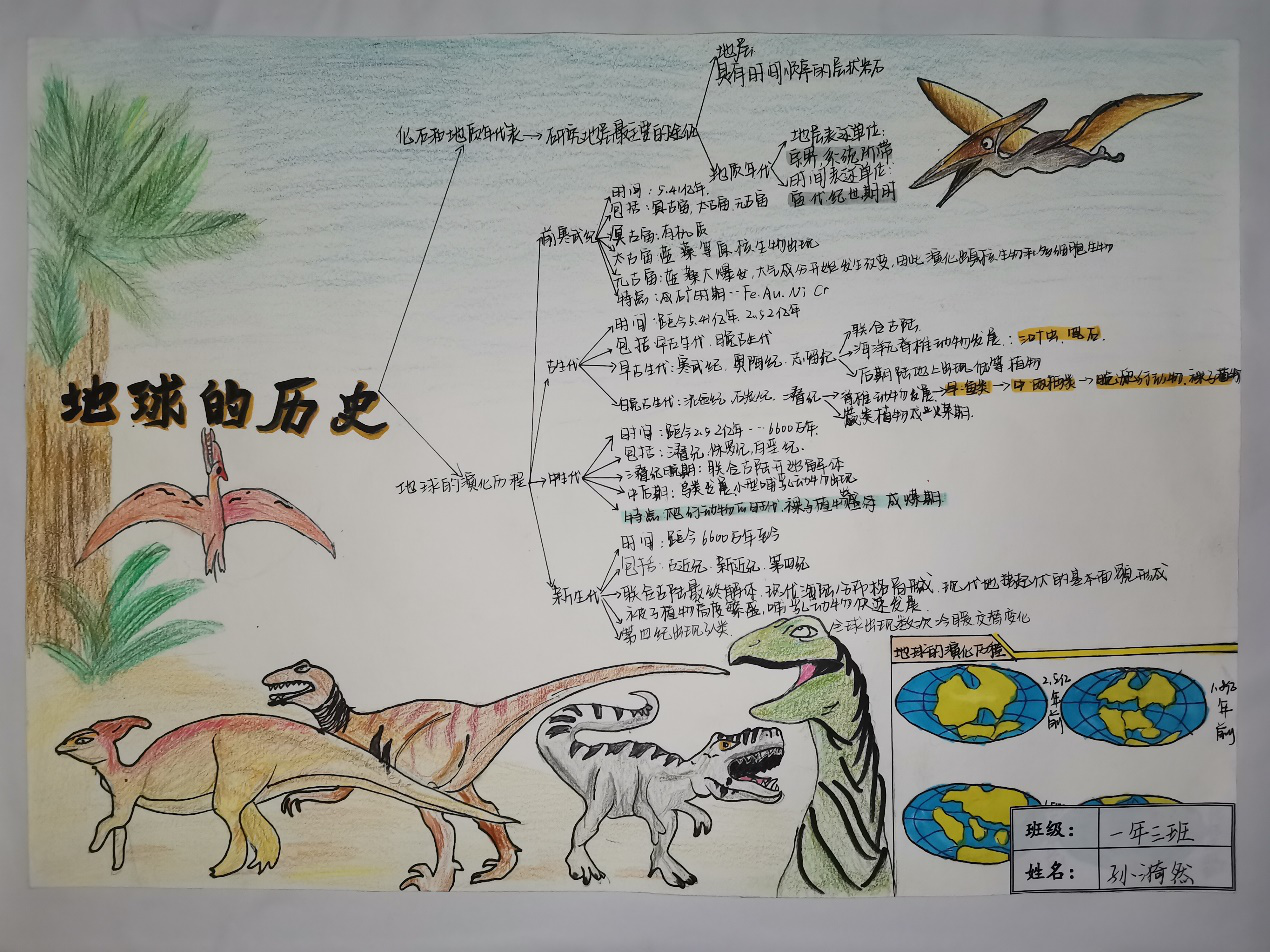 地层:
具有时间顺序的层状岩石
化石和地质年代表
研究地层最主要的途径
地层表述单位:
宇界,系统阶带
地质年代
时间表述单位:
宙代纪世期时
时间:5.41亿年.
包括:冥古宙,太古宙,元古宙
前寒武纪
冥古宙:有机质
太古宙:蓝藻等原核生物出现
元古宙:蓝藻大爆发,大气成分开始发生改变,因此演化出真核生物和多细胞生物
特点:成矿时期--Fe.Au.Ni Cr
时间:距今5.41亿年.2.52亿年
包括早古生代.晚古生代
联合古陆
古生代
早古生代:寒武纪.奥陶纪.志留纪
海洋无脊椎动物发展:三叶虫.
后期陆地上出现低等植物
晚古生代:泥盆纪.石炭纪.二叠纪
脊椎动物发展:早.鱼类
中.两栖类
晚.爬行动物.裸子植物
蕨类植物成
期.
地球的历史
时间:距今2.52亿年--6600万年.
包括:三叠纪,侏罗纪,白垩纪.
地球的演化历程
中生代
三叠纪晚期:联合古陆开始解体
中后期:鸟类发展,小型哺乳动物出现
特点:爬行动物
时代.裸子植物
时间:距今6600万年至今
包括:古近纪.新近纪.第四纪
新生代
联合古陆最终解体.现代海陆分布格局
.现代地势起伏的基本面貌形成
被子植物高度繁盛,哺乳动物快速发展.
第四纪出现人类.
全球出现数次冷暖交替变化
地球的演化历程
2.5亿年前
1.8亿年前
班级:
一年三班
姓名:
孙漪然